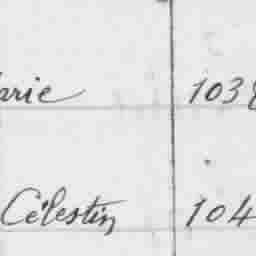 arie 1038
Célestin 104